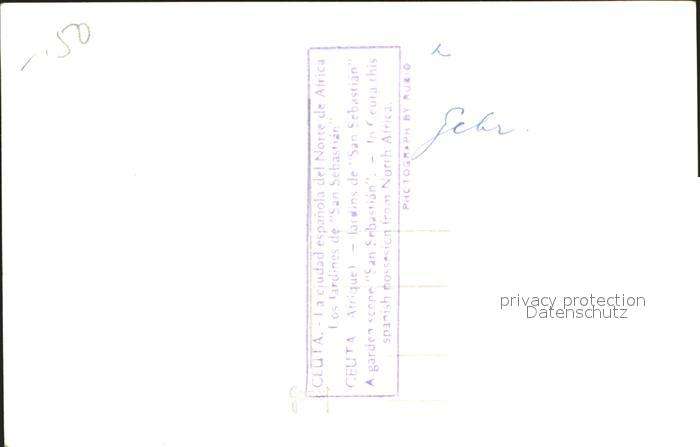 -.50
CEUTA. - La ciudad española del Norte de Africa
Los Jardines de "San Sebastián"
CEUTA Afrique) - Jardins de "San Sebastian"
A garden scene "San Sebastián". - In Ceuta this
spanish possesion from North Africa.
PHOTOGRAPH BY RUBIO
Gebr.
privacy protection
Datenschutz